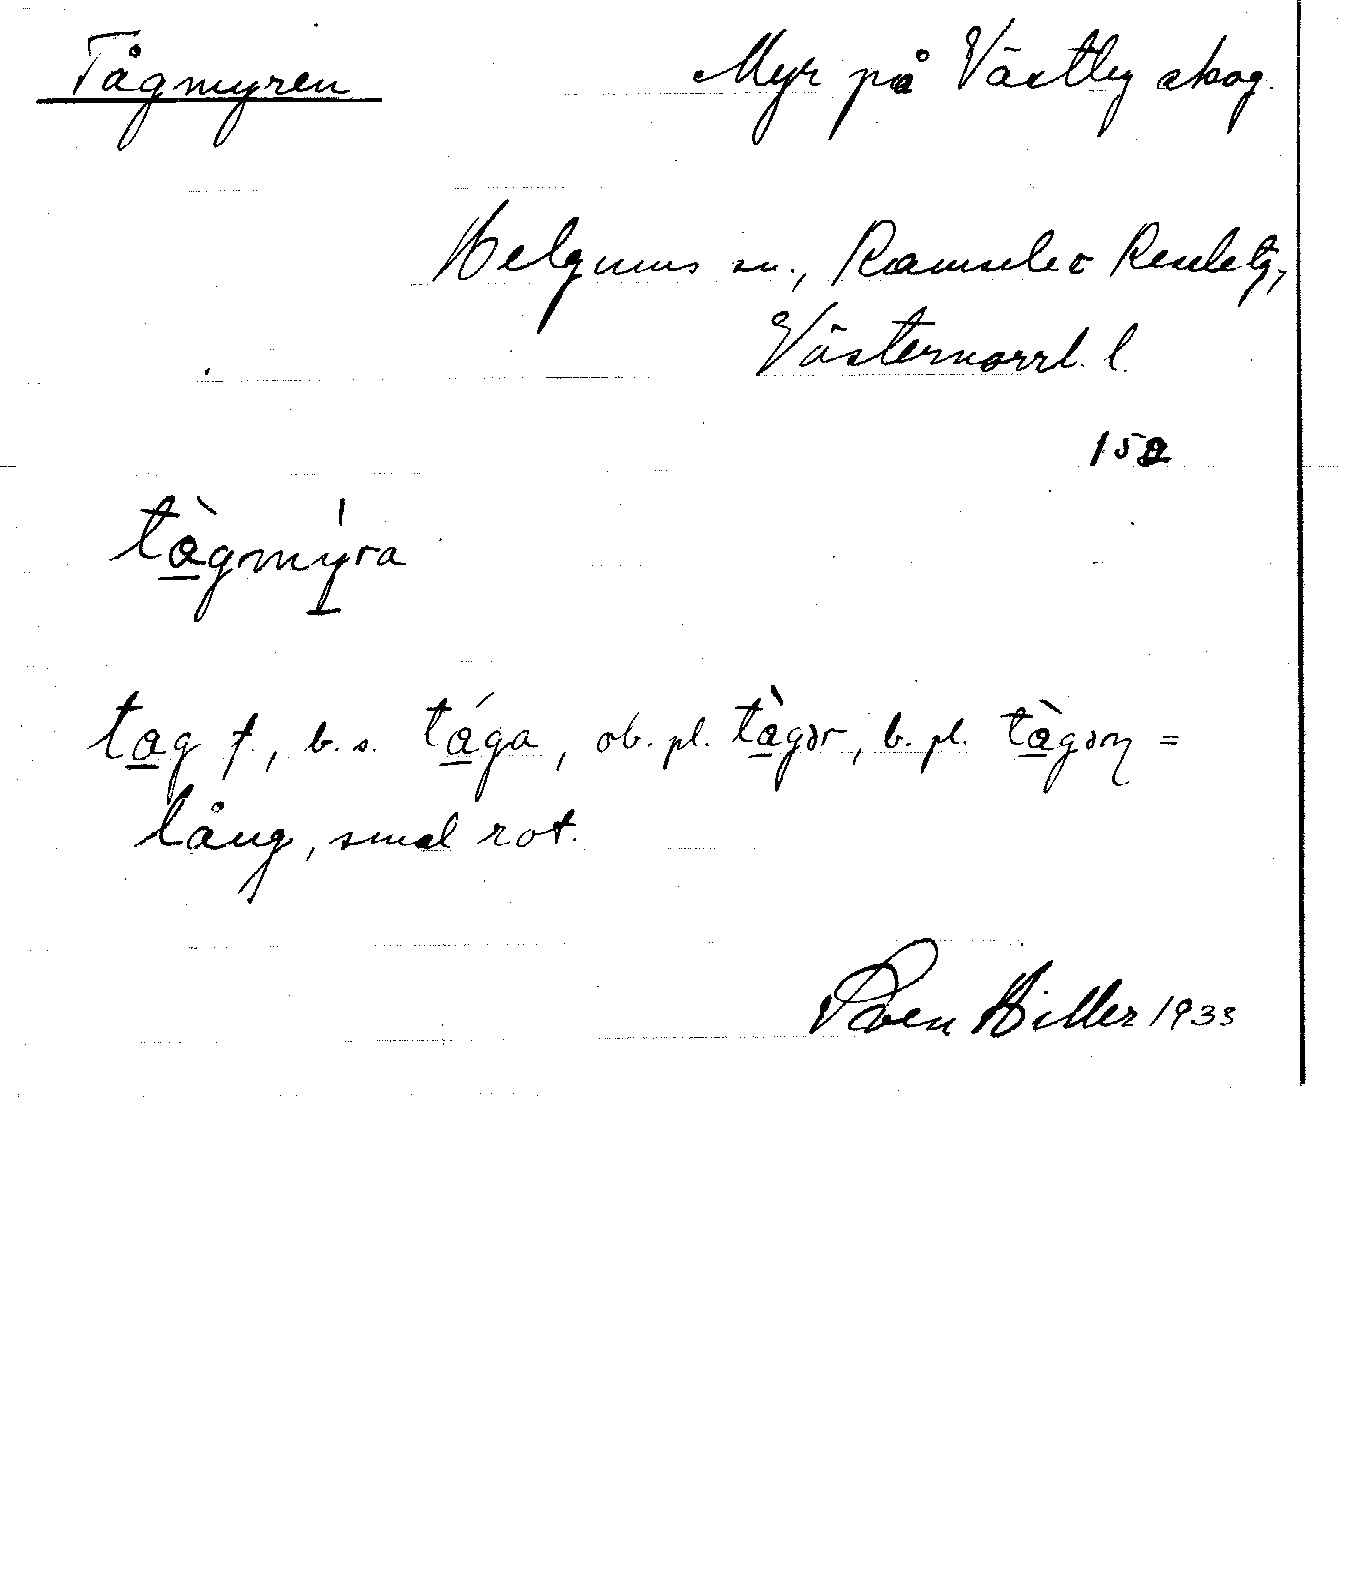 Tågmyren Myr på Västby skog.
Helgums sn., Ramsele o Resele tg,
Västernorrl. l.
152
tàgmýra
tag f., b. s. tága, ob. pl. tàgər, b. pl. tàgəɳ =
lång, smal rot.
Sven Hiller 1933